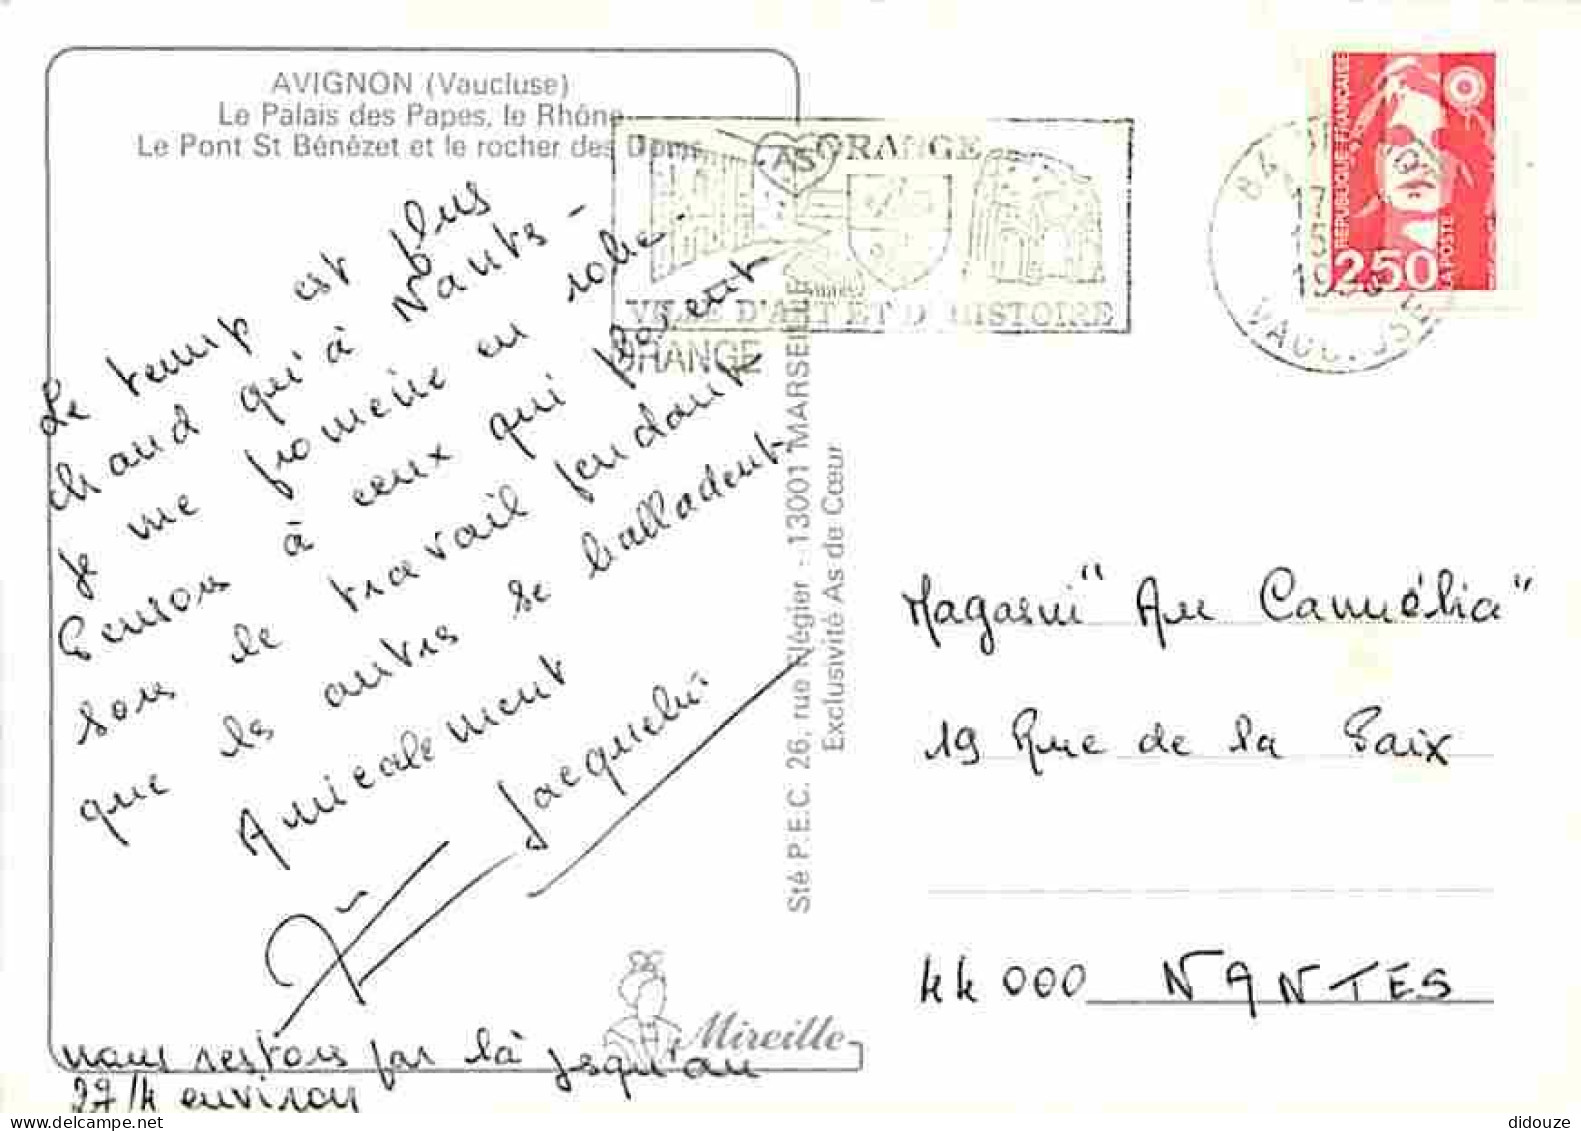 AVIGNON (Vaucluse)
Le Palais des Papes, le Rhône
Le Pont St Bénézet et le rocher des Doms
Le temps est plus
chaud qu'à Nants -
Je me promène en robe.
Pensons à ceux qui
sous le travail pendant
que ls autres se balladent
Amicalement
Jacqueline
nous restons par là jsqu'au
27/4 environ
Mireille
Sté P.E.C. 26, rue Flégier - 13001 MARSEILLE
Exclusivité As de Cœur
AS
ORANGE
VILLE D'ART ET D'HISTOIRE
ORANGE
84
VAUCLUSE
REPUBLIQUE FRANÇAISE
2,50
LA POSTE
Magasin "Au Camélia"
19 Rue de la Paix
44 000 NANTES
didouze